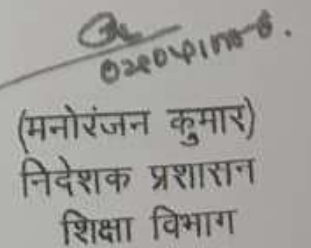 (मनोरंजन कुमार)
निदेशक प्रशासन
शिक्षा विभाग